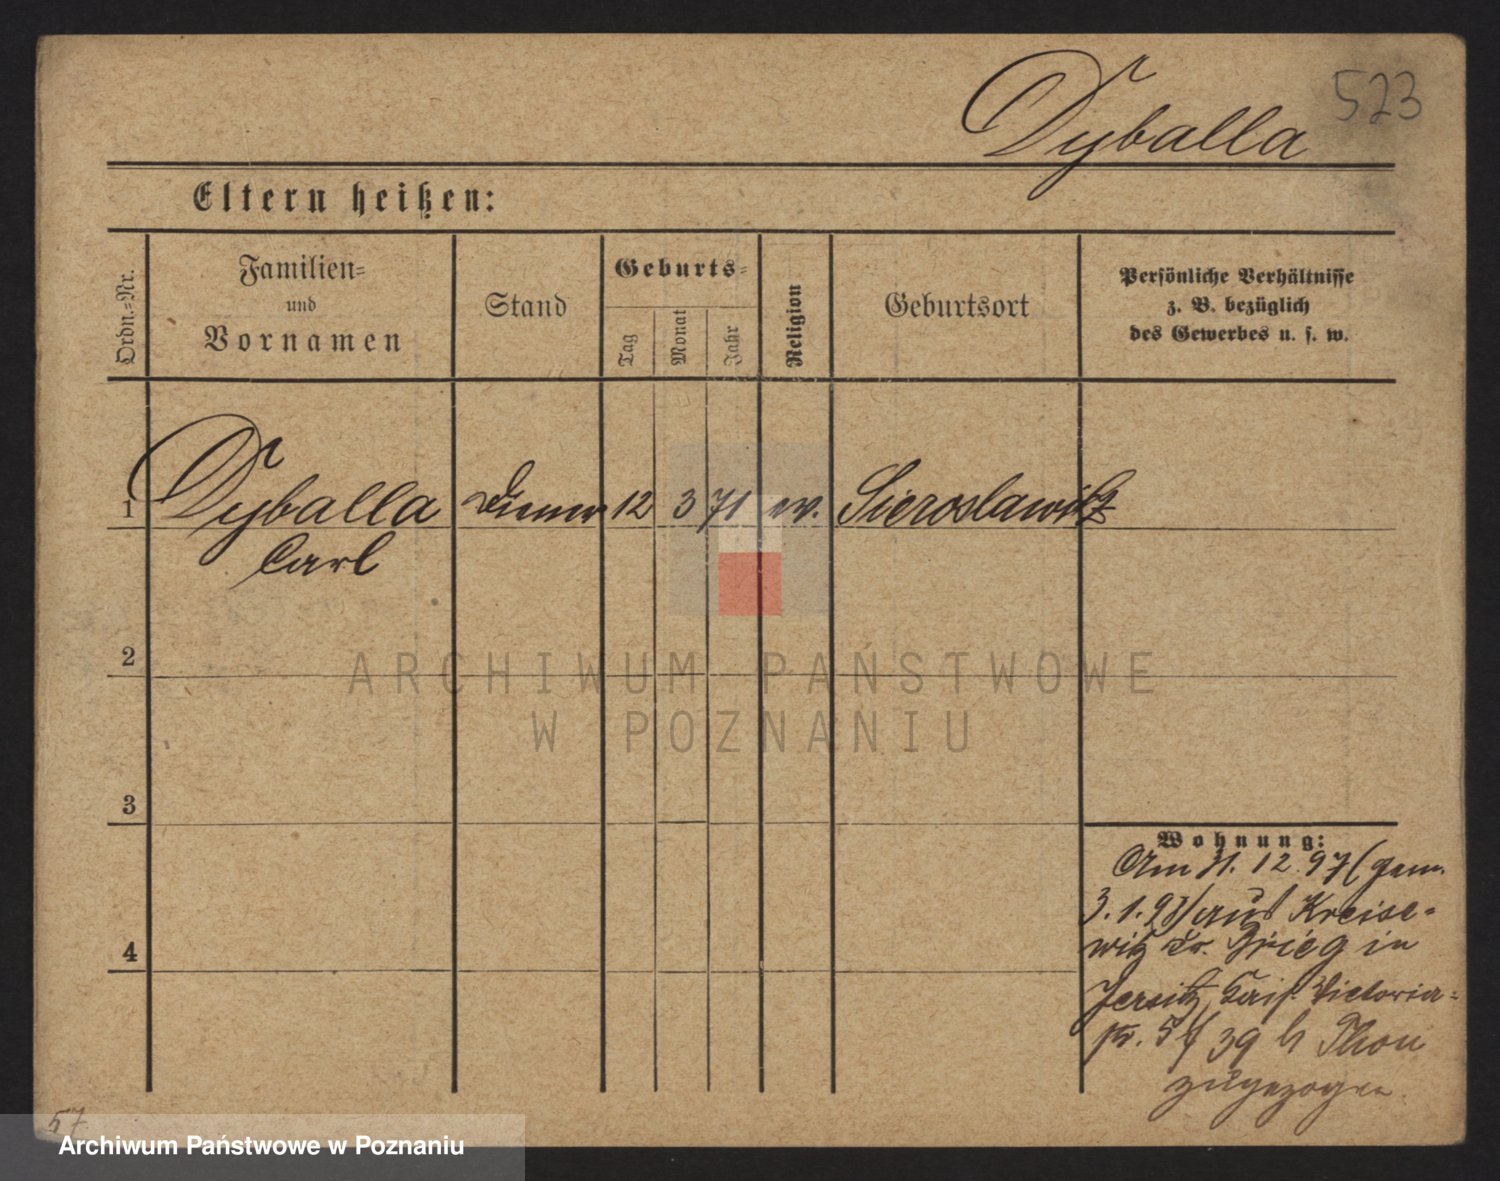 523
Dyballa
Eltern heißen:
Ordn.-Nr.
Familien-
und
Vornamen
Stand
Geburts-
Tag
Monat
Jahr
Religion
Geburtsort
Persönliche Verhältnisse
z. B. bezüglich
des Gewerbes u. s. w.
1 Dyballa Diener 12 3 71 ev. Sieroslawitz
Carl
2
ARCHIWUM PAŃSTWOWE
W POZNANIU
3
4
Wohnung:
Am 31. 12. 97 (gem.
3. 1. 98) aus Kreise-
witz Kr. Brieg in
Jersitz, Kais. Victoria-
str. 5 39 b Thon
zugezogen.
57
Archiwum Państwowe w Poznaniu